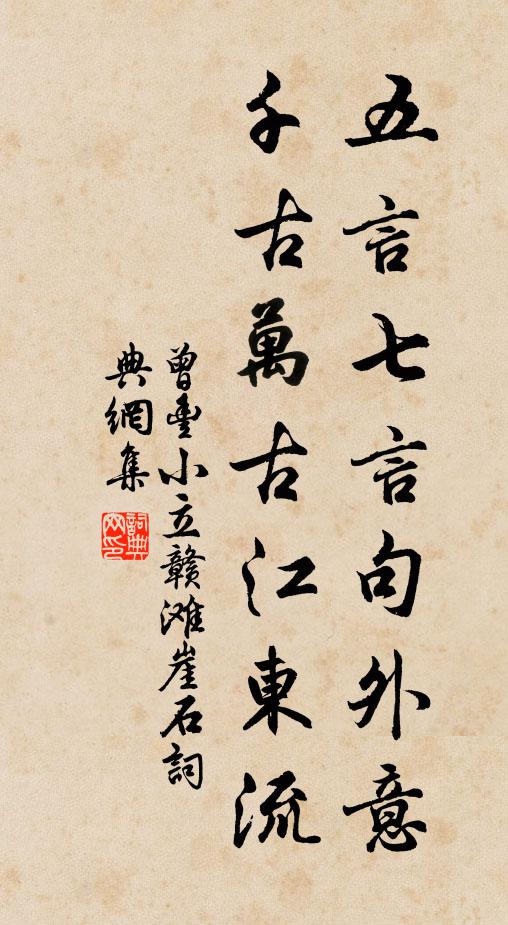 五言七言句外意
千古萬古江東流
曾豊小立赣滩崖石詞
典網集
詞典网印